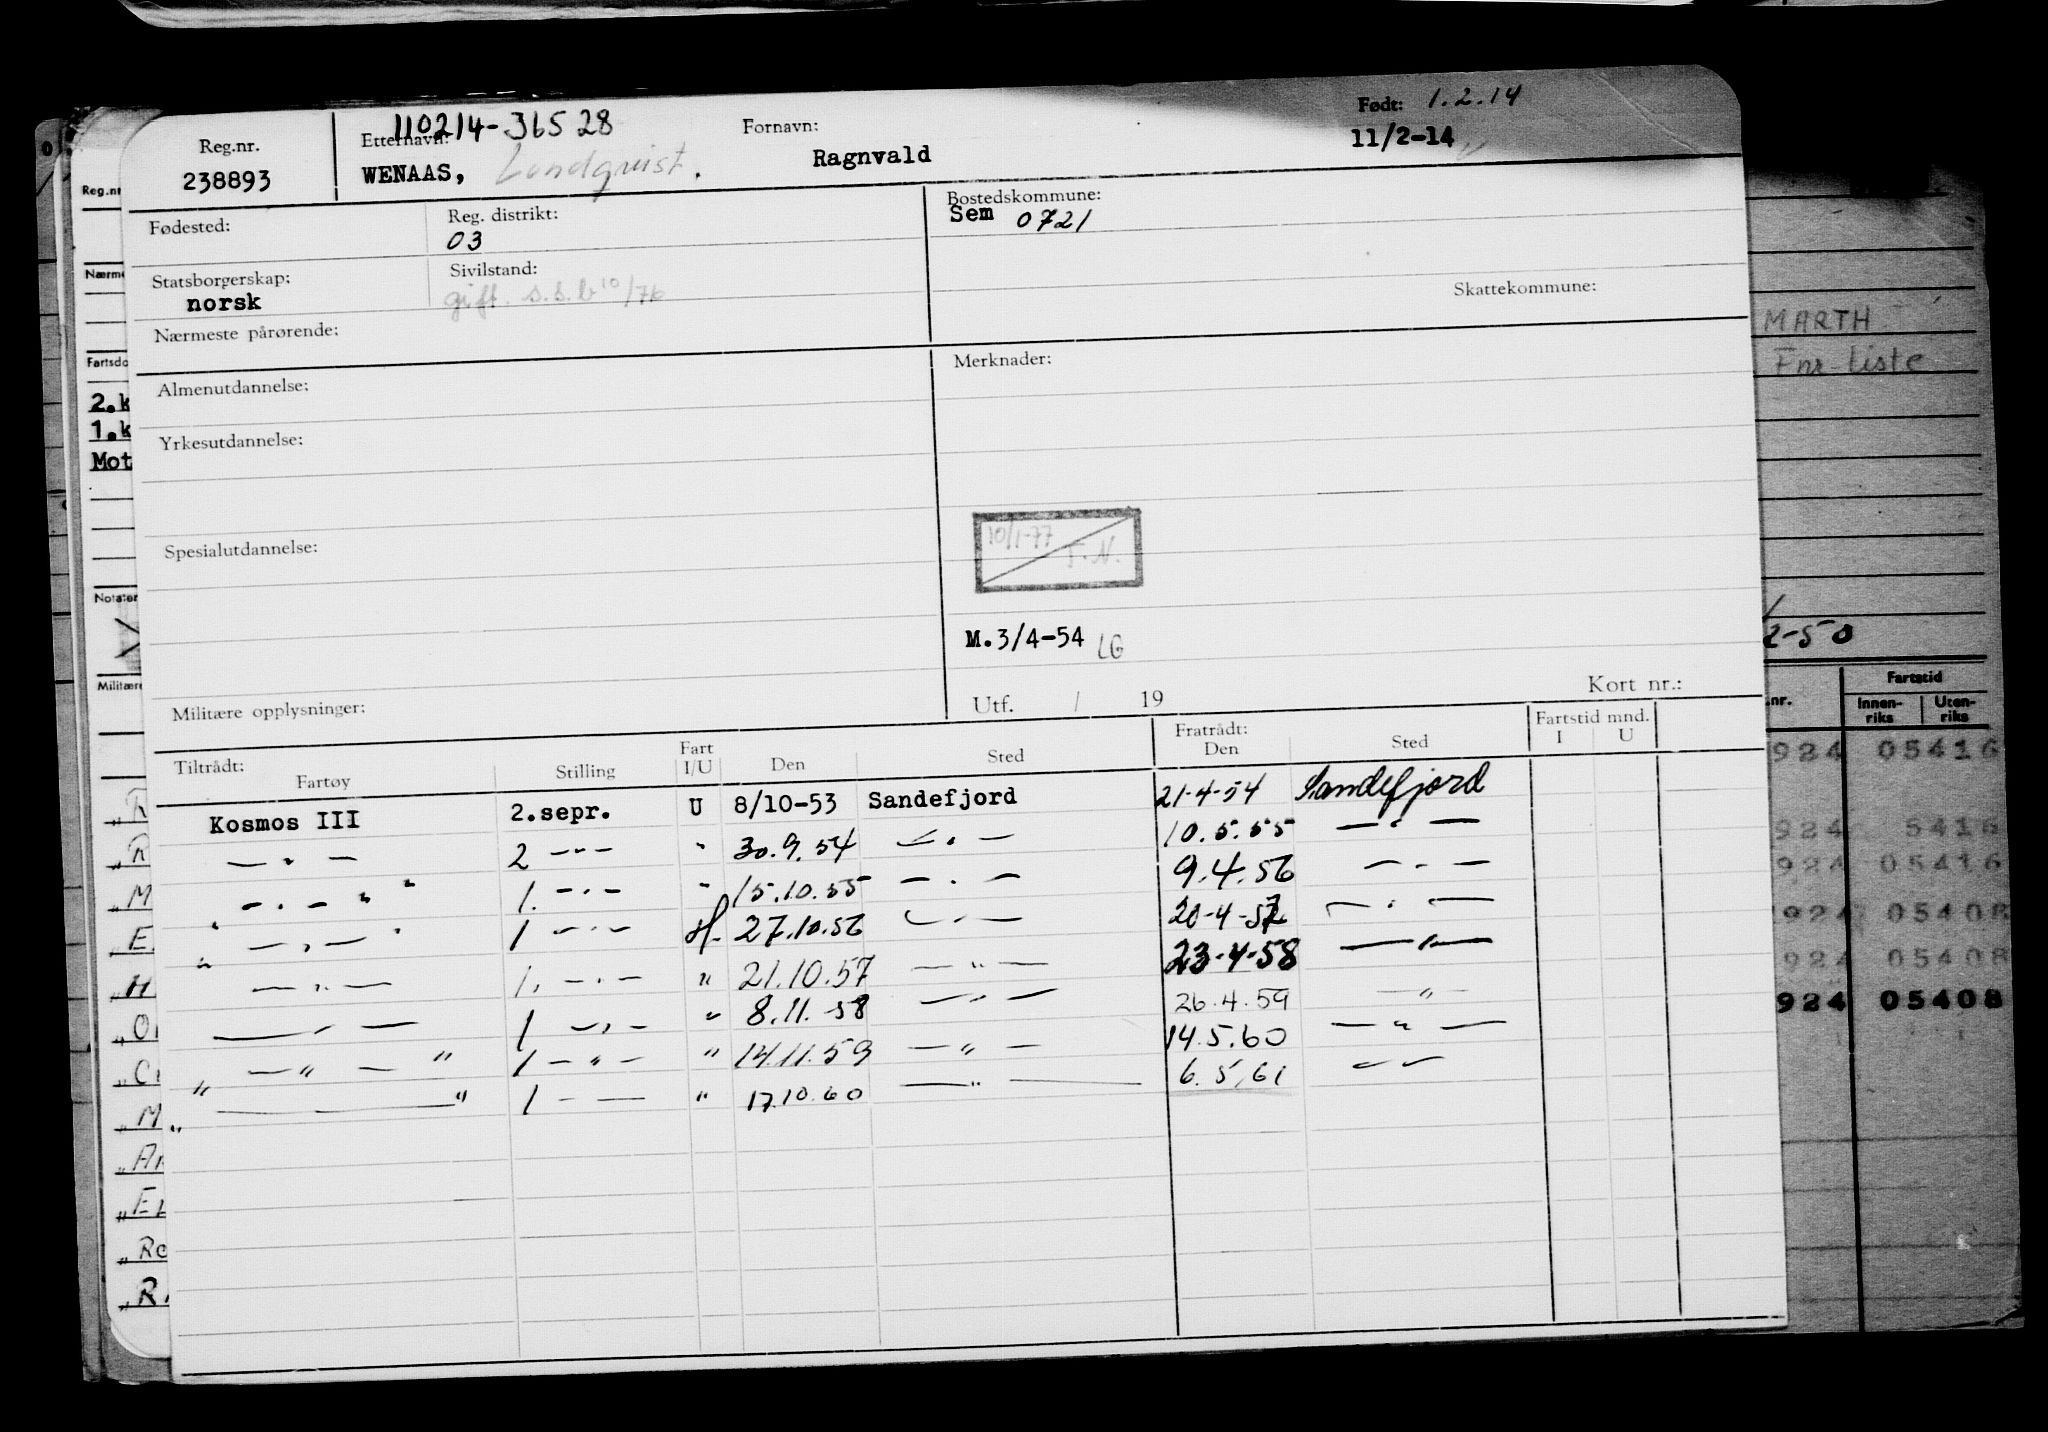 110214-36528
Reg.nr. Etternavn: Fornavn: Født: 1.2.14
238893 WENAAS, Lundquist. Ragnvald 11/2-14
Fødested: Reg. distrikt: Bostedskommune:
03 Sem 0721
Statsborgerskap: Sivilstand: Skattekommune:
norsk gift. s.s.b 10/76
Nærmeste pårørende:
Almenutdannelse: Merknader:
Yrkesutdannelse:
10/1-77
Spesialutdannelse:
M.3/4-54 LG
Militære opplysninger: Utf. / 19 Kort nr.:
Tiltrådt: Fart Fratrådt: Fartstid mnd.
Fartøy Stilling I/U Den Sted Den Sted I U
Kosmos III 2.sepr. U 8/10-53 Sandefjord 21-4-54 Sandefjord
— " — 2 — " — " 30.9.54 — " — 10.5.55 — " —
— " — " 1. — " — " 15.10.55 — " — 9.4.56 — " —
" — " — " 1 — " — H. 27.10.56 — " — 20-4-57 — " —
" — " — 1. — " — " 21.10.57 — " — 23-4-58 — " —
— " — 1 — " — " 8.11.58 — " — 26.4.59 — " —
— " — " 1 — " — " 14.11.59 — " — 14.5.60 — " —
" — " 1 — — " 17.10.60 — " — 6.5.61 — —
"
Reg.nr
Nærme
Fartsdo
2.k
1.k
Mot
Notater
Militære
MARTH
Fnr. liste
2-50
Fartstid
.nr. Innen-riks Uten-riks
924 05416
924 5416
924 05416
924 05408
924 05408
924 05408